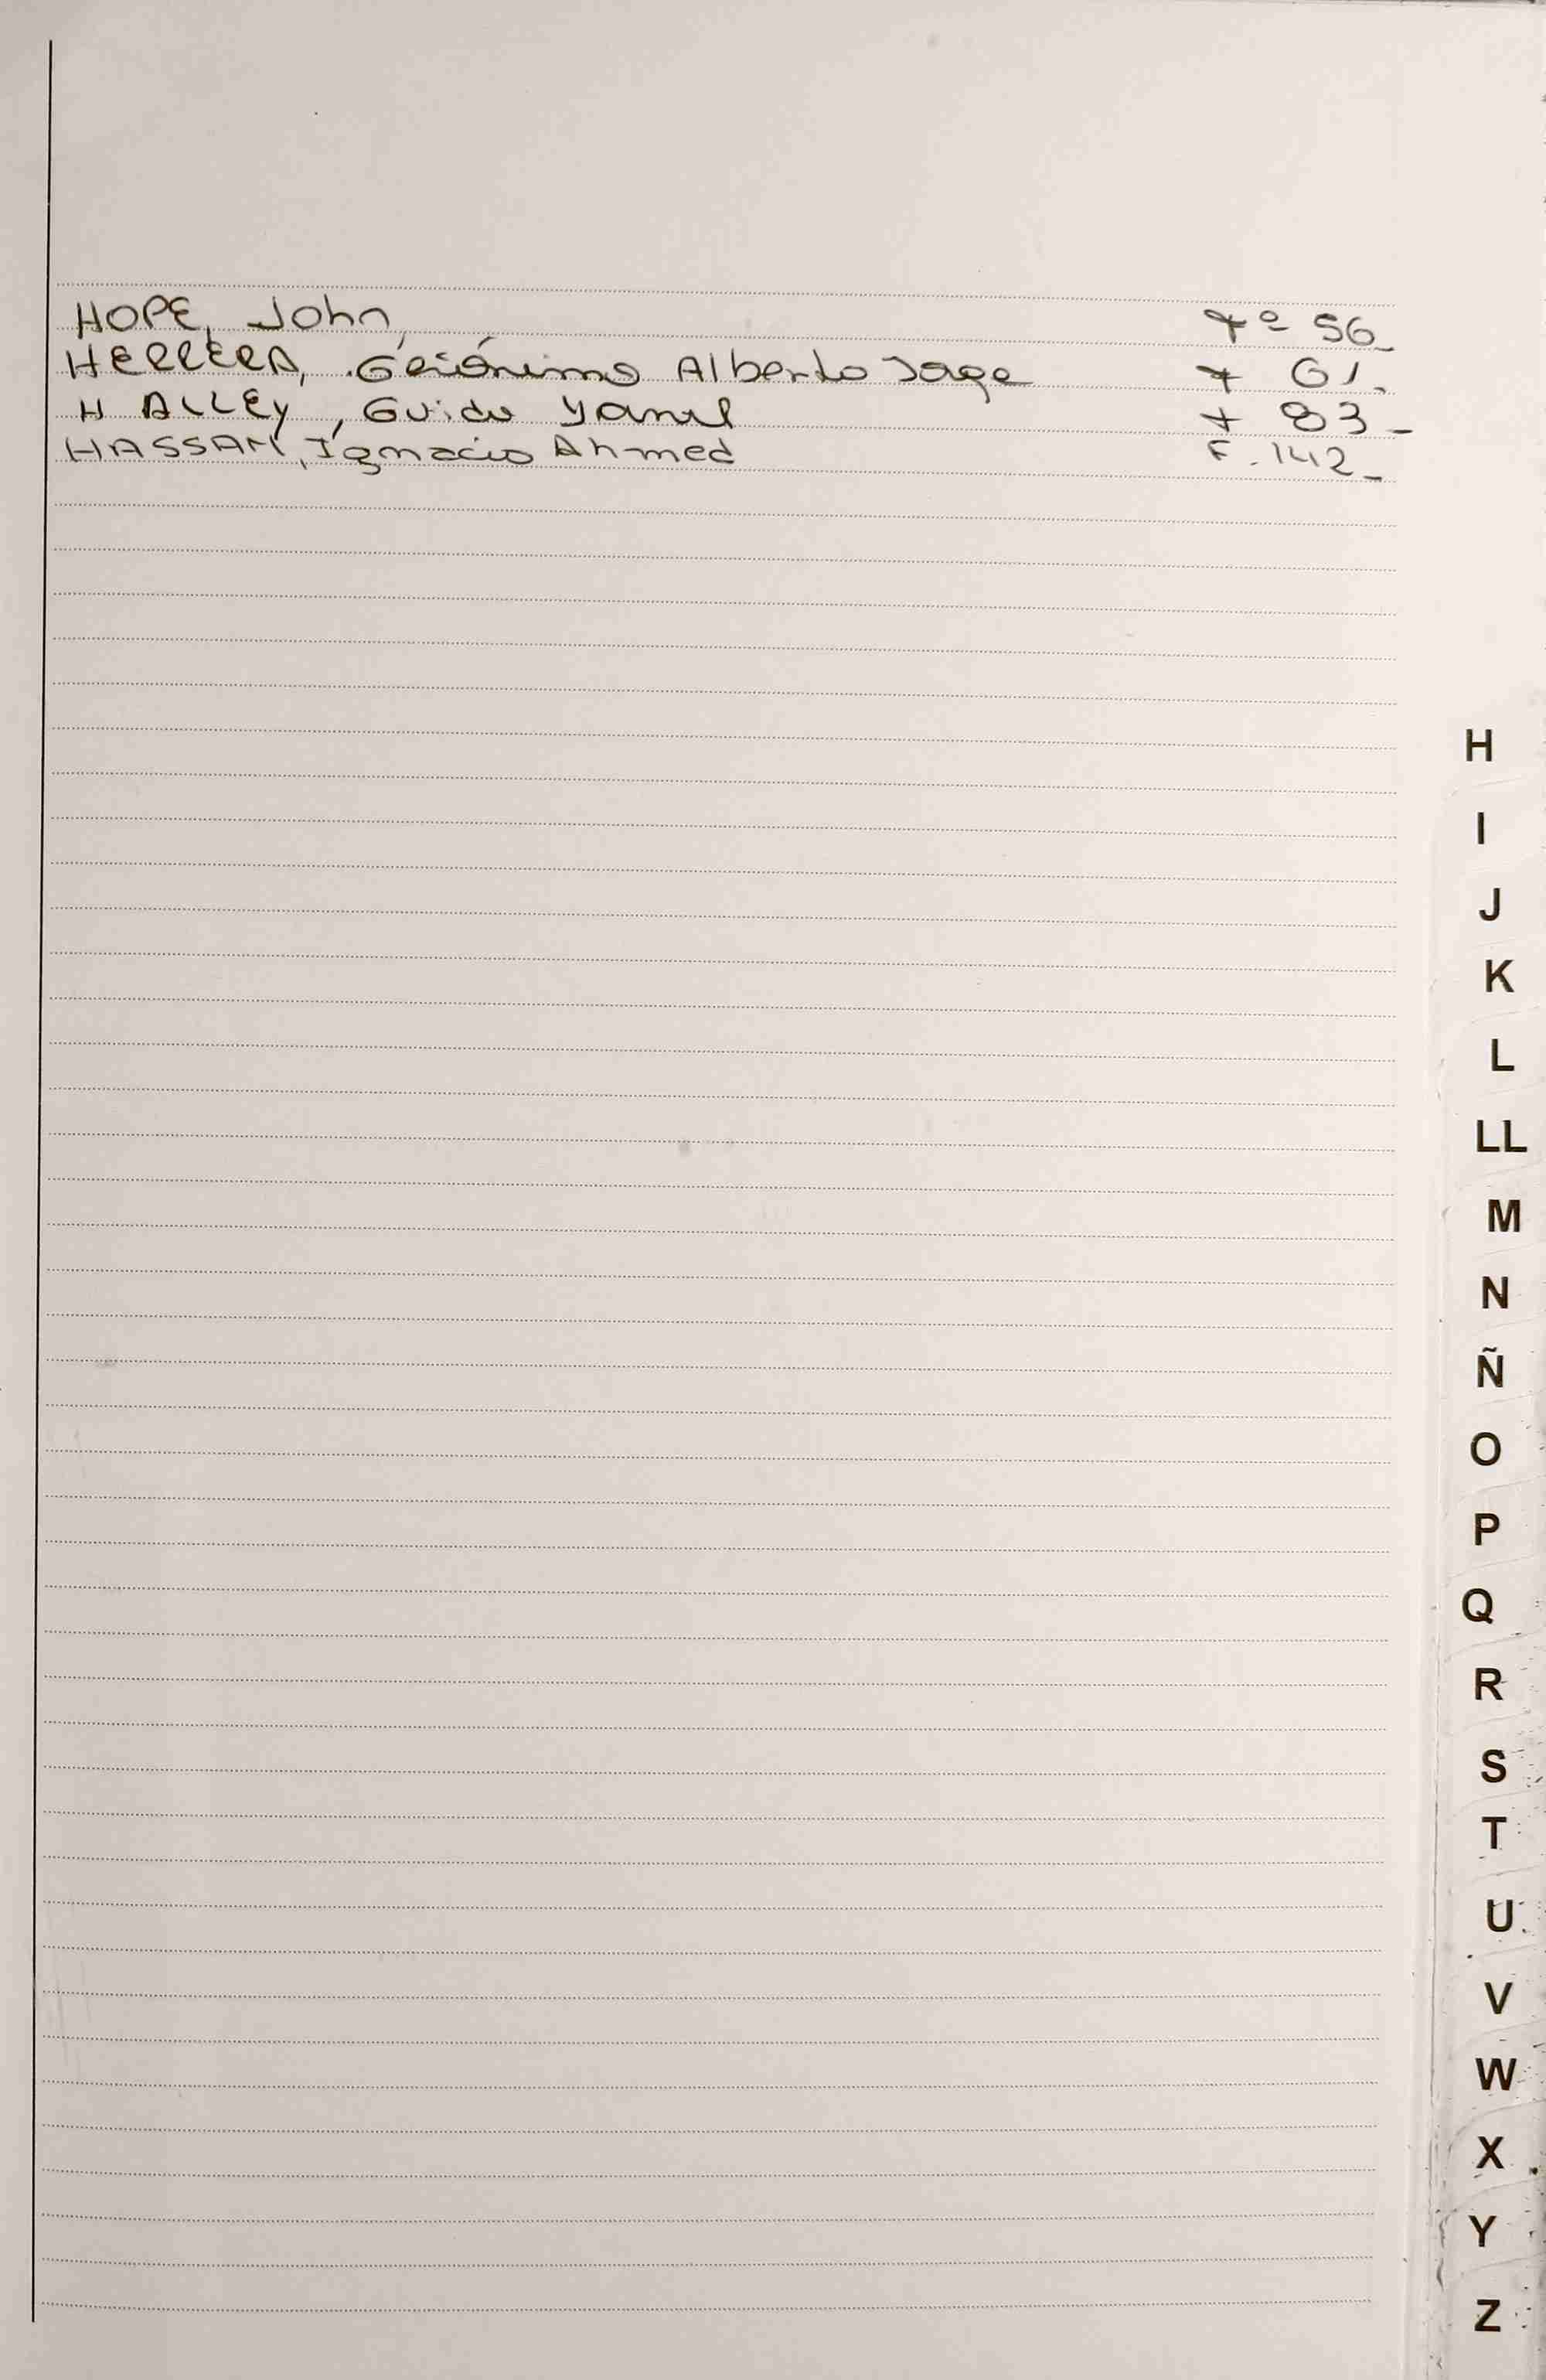 HOPE, John fº 56_
HERRERA, Gerónimo Alberto Jorge f 61.
HALLEY, Guido Yamil f 83_
HASSAM, Ignacio Ahmed F. 142_
H
I
J
K
L
LL
M
N
Ñ
O
P
Q
R
S
T
U
V
W
X
Y
Z